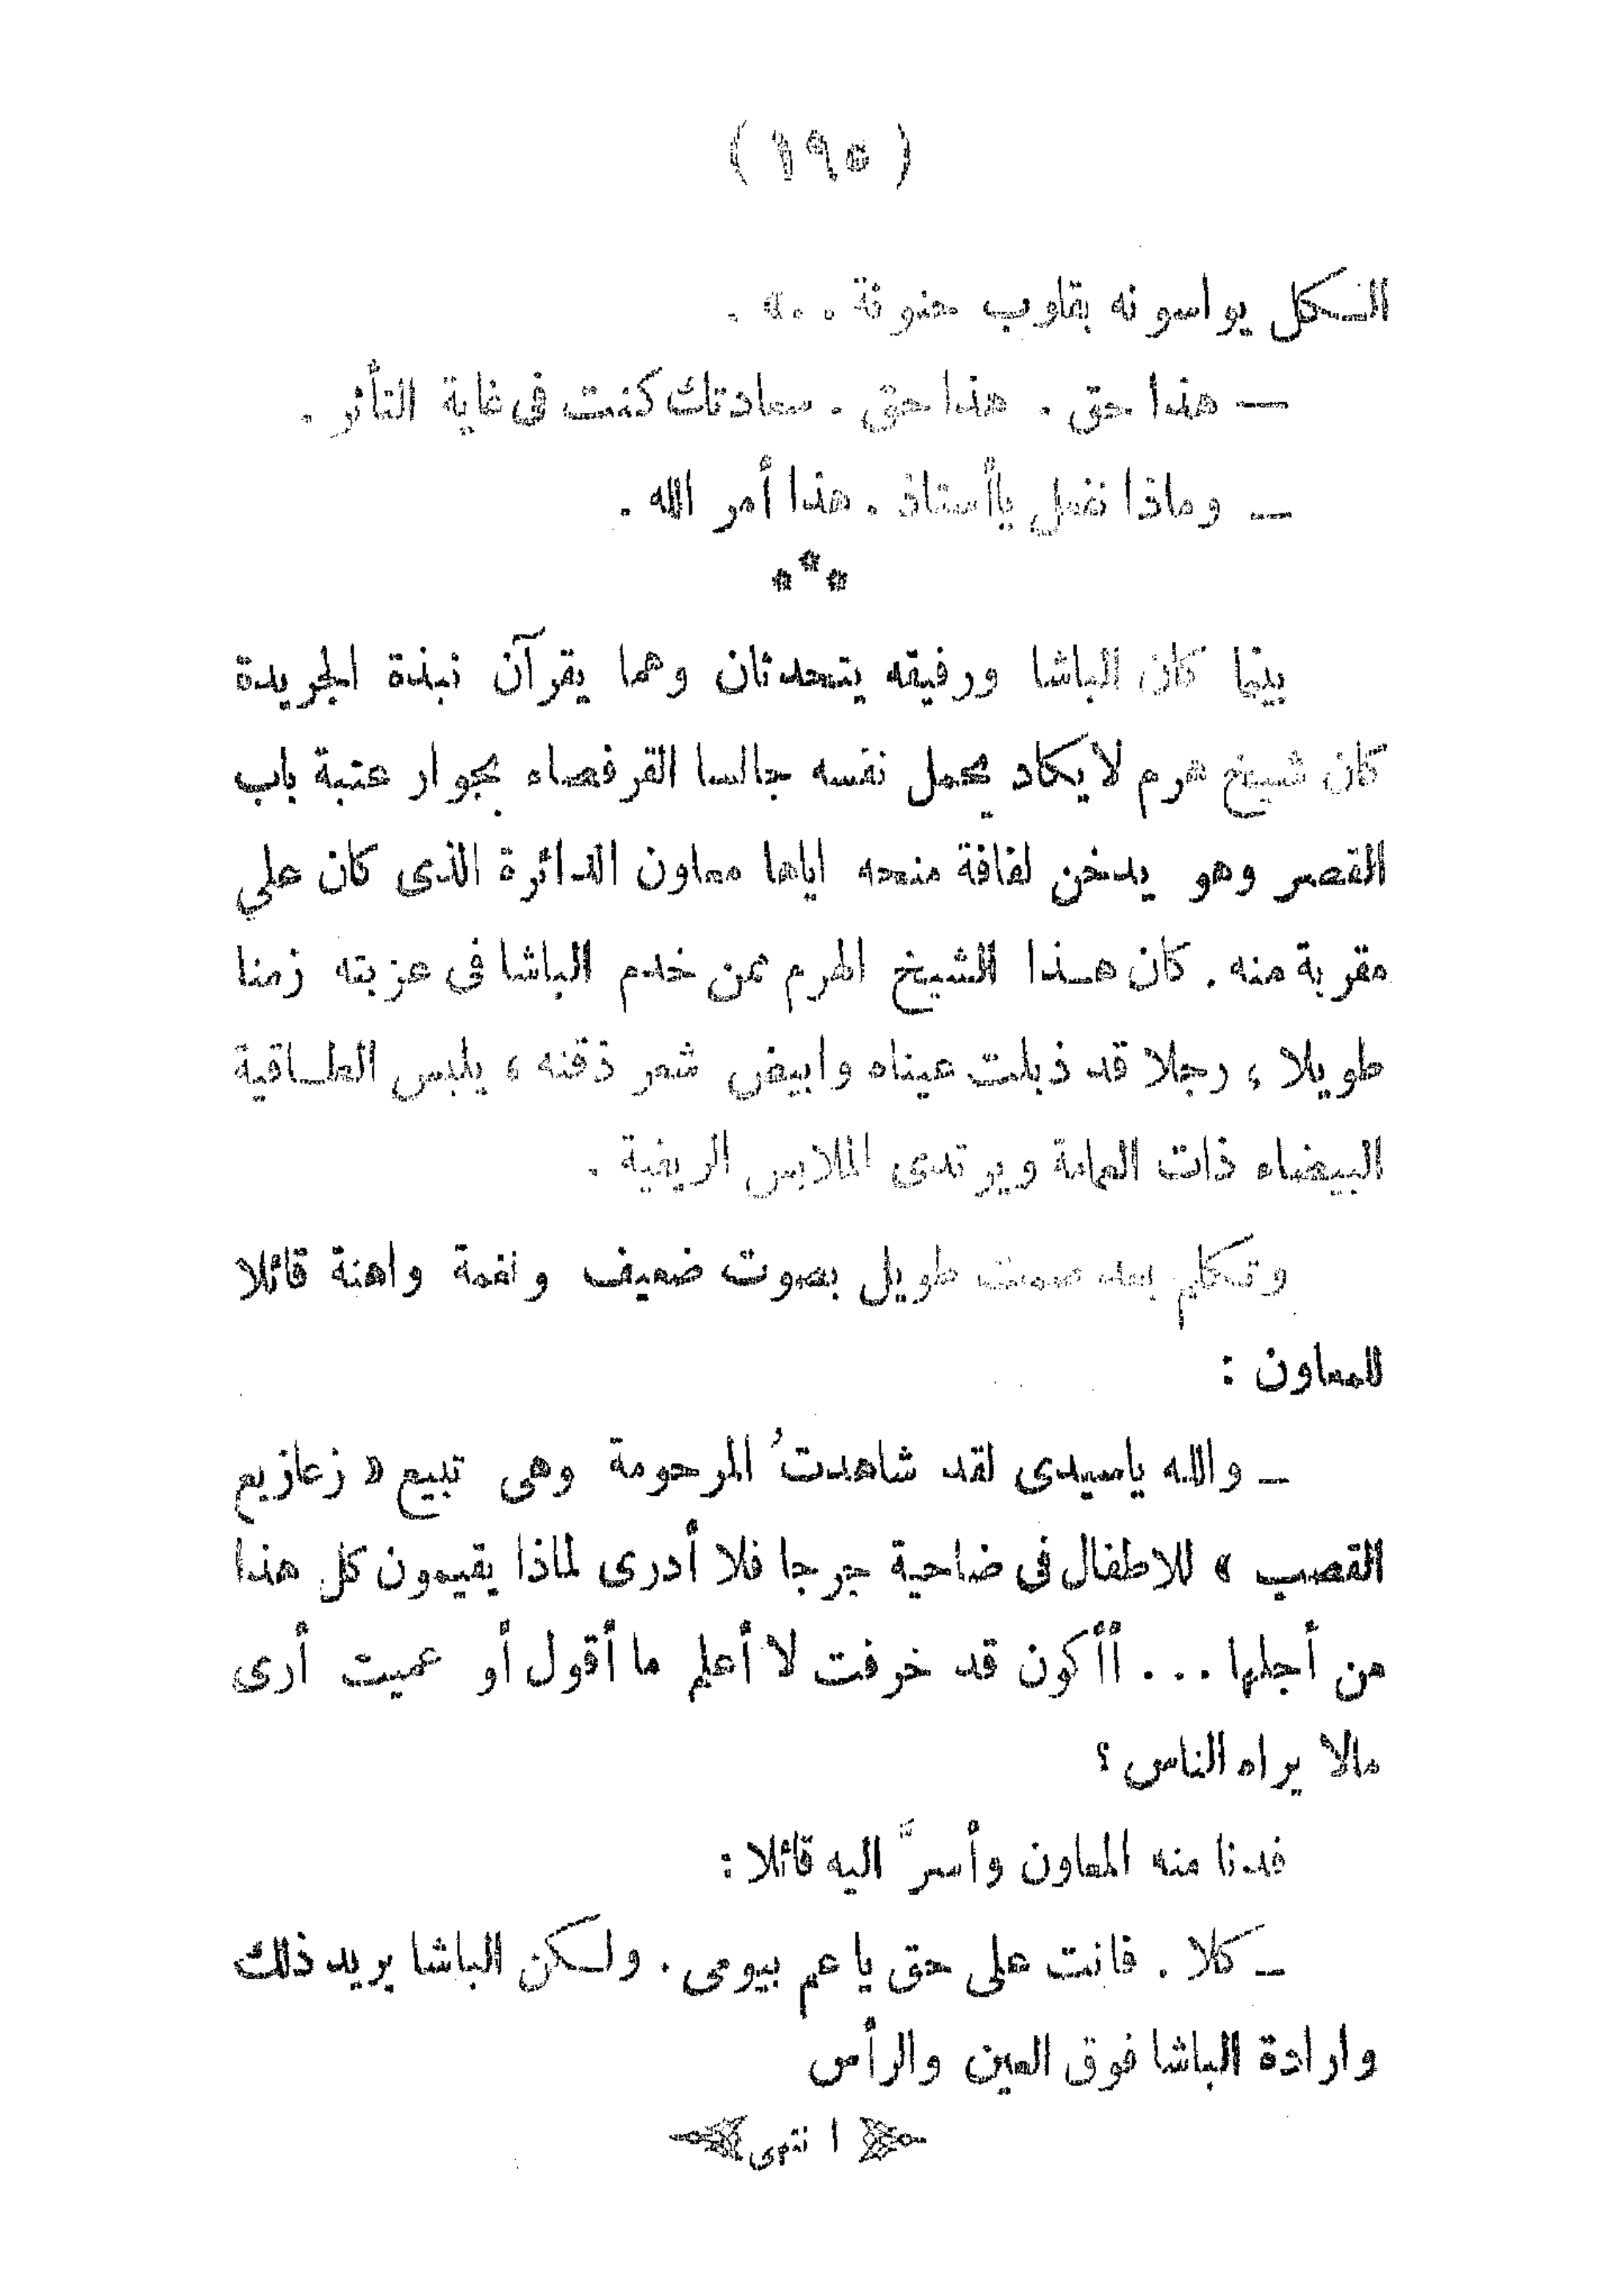 ( ١٩٥ )
الكل يواسونه بقلوب حنونة . . ». .
— هذا حق . هذا حق . سعادتك كنت فى غاية التأثر .
— وماذا نفعل ياأستاذ . هذا أمر الله .
***
بينما كان الباشا ورفيقه يتحدثان وهما يقرآن نبذة الجريدة
كان شيخ هرم لايكاد يحمل نفسه جالسا القرفصاء بجوار عتبة باب
القصر وهو يدخن لفافة منحه اياها معاون الدائرة الذى كان على
مقربة منه . كان هذا الشيخ الهرم ممن خدم الباشا فى عزبته زمنا
طويلا ، رجلا قد ذبلت عيناه وابيض شعر ذقنه ، يلبس الطاقية
البيضاء ذات العمامة ويرتدى الملابس الريفية .
وتكلم بعد صمت طويل بصوت ضعيف ونغمة واهنة قائلا
للمعاون :
— والله ياسيدى لقد شاهدتُ المرحومة وهى تبيع « زعازيع
القصب » للاطفال فى ضاحية جرجا فلا أدرى لماذا يقيمون كل هذا
من أجلها . . . أأكون قد خرفت لا أعلم ما أقول أو عميت أرى
مالا يراه الناس ؟
فدنا منه المعاون وأسرَّ اليه قائلا :
— كلا . فانت على حق يا عم بيومى . ولكن الباشا يريد ذلك
وارادة الباشا فوق العين والرأس
انتهى